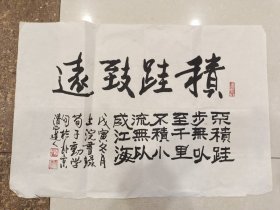 積跬致遠
不積跬
步無以
至千里
不積小
流無以
成江海
戊寅冬月
上浣書錄
荀子勸學
句於北京